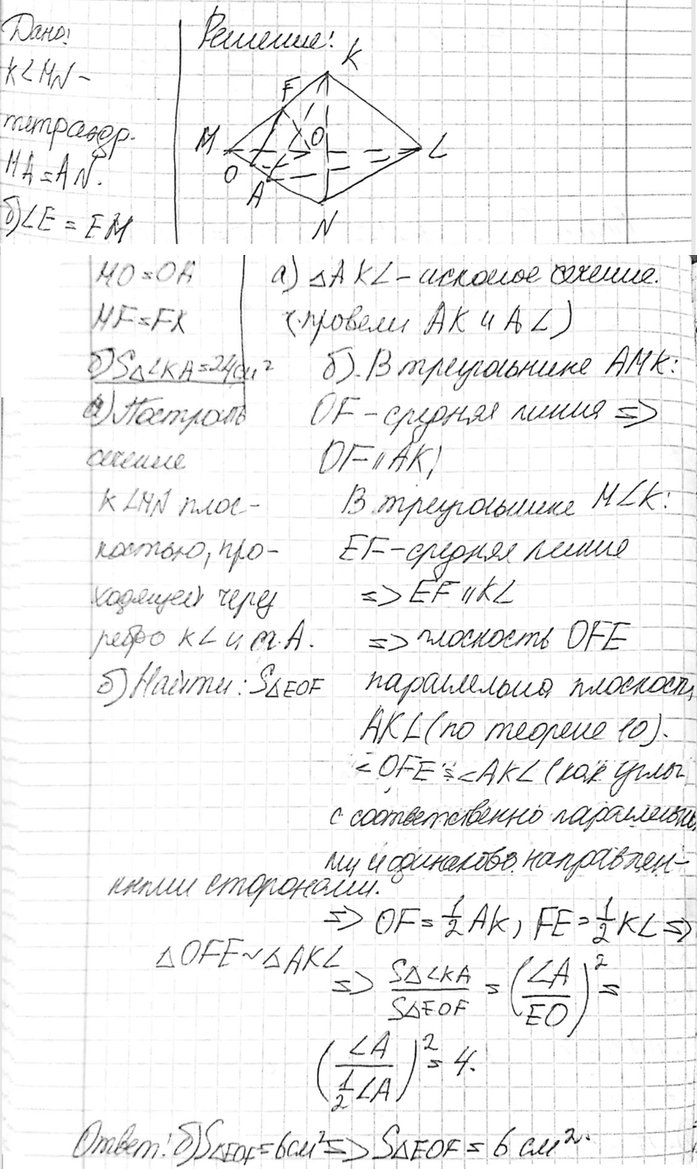 Дано:
KLMN –
тетраэдр.
MA = AN.
б) LE = EM
Решение:
K
F
M
O
O
L
A
N
MO = OA
MF = FK
б) S△LKA = 24 см²
а) Построить
сечение
KLMN плос-
костью, про-
ходящей через
ребро KL и т. A.
б) Найти: S△EOF
а) △AKL – искомое сечение.
(провели AK и AL)
б) В треугольнике AMK:
OF – средняя линия =>
OF ∥ AK;
В треугольнике MLK:
EF – средняя линия
=> EF ∥ KL
=> плоскость OFE
параллельна плоскости
AKL (по теореме 10).
∠OFE = ∠AKL (как углы
с соответственно параллельны-
ми и одинаково направлен-
ными сторонами.
=> OF = 1/2 AK, FE = 1/2 KL =>
△OFE ~ △AKL
=> S△LKA / S△EOF = (LA / EO)² =
(LA / (1/2 LA))² = 4.
Ответ: б) S△EOF = 6 см² => S△EOF = 6 см².